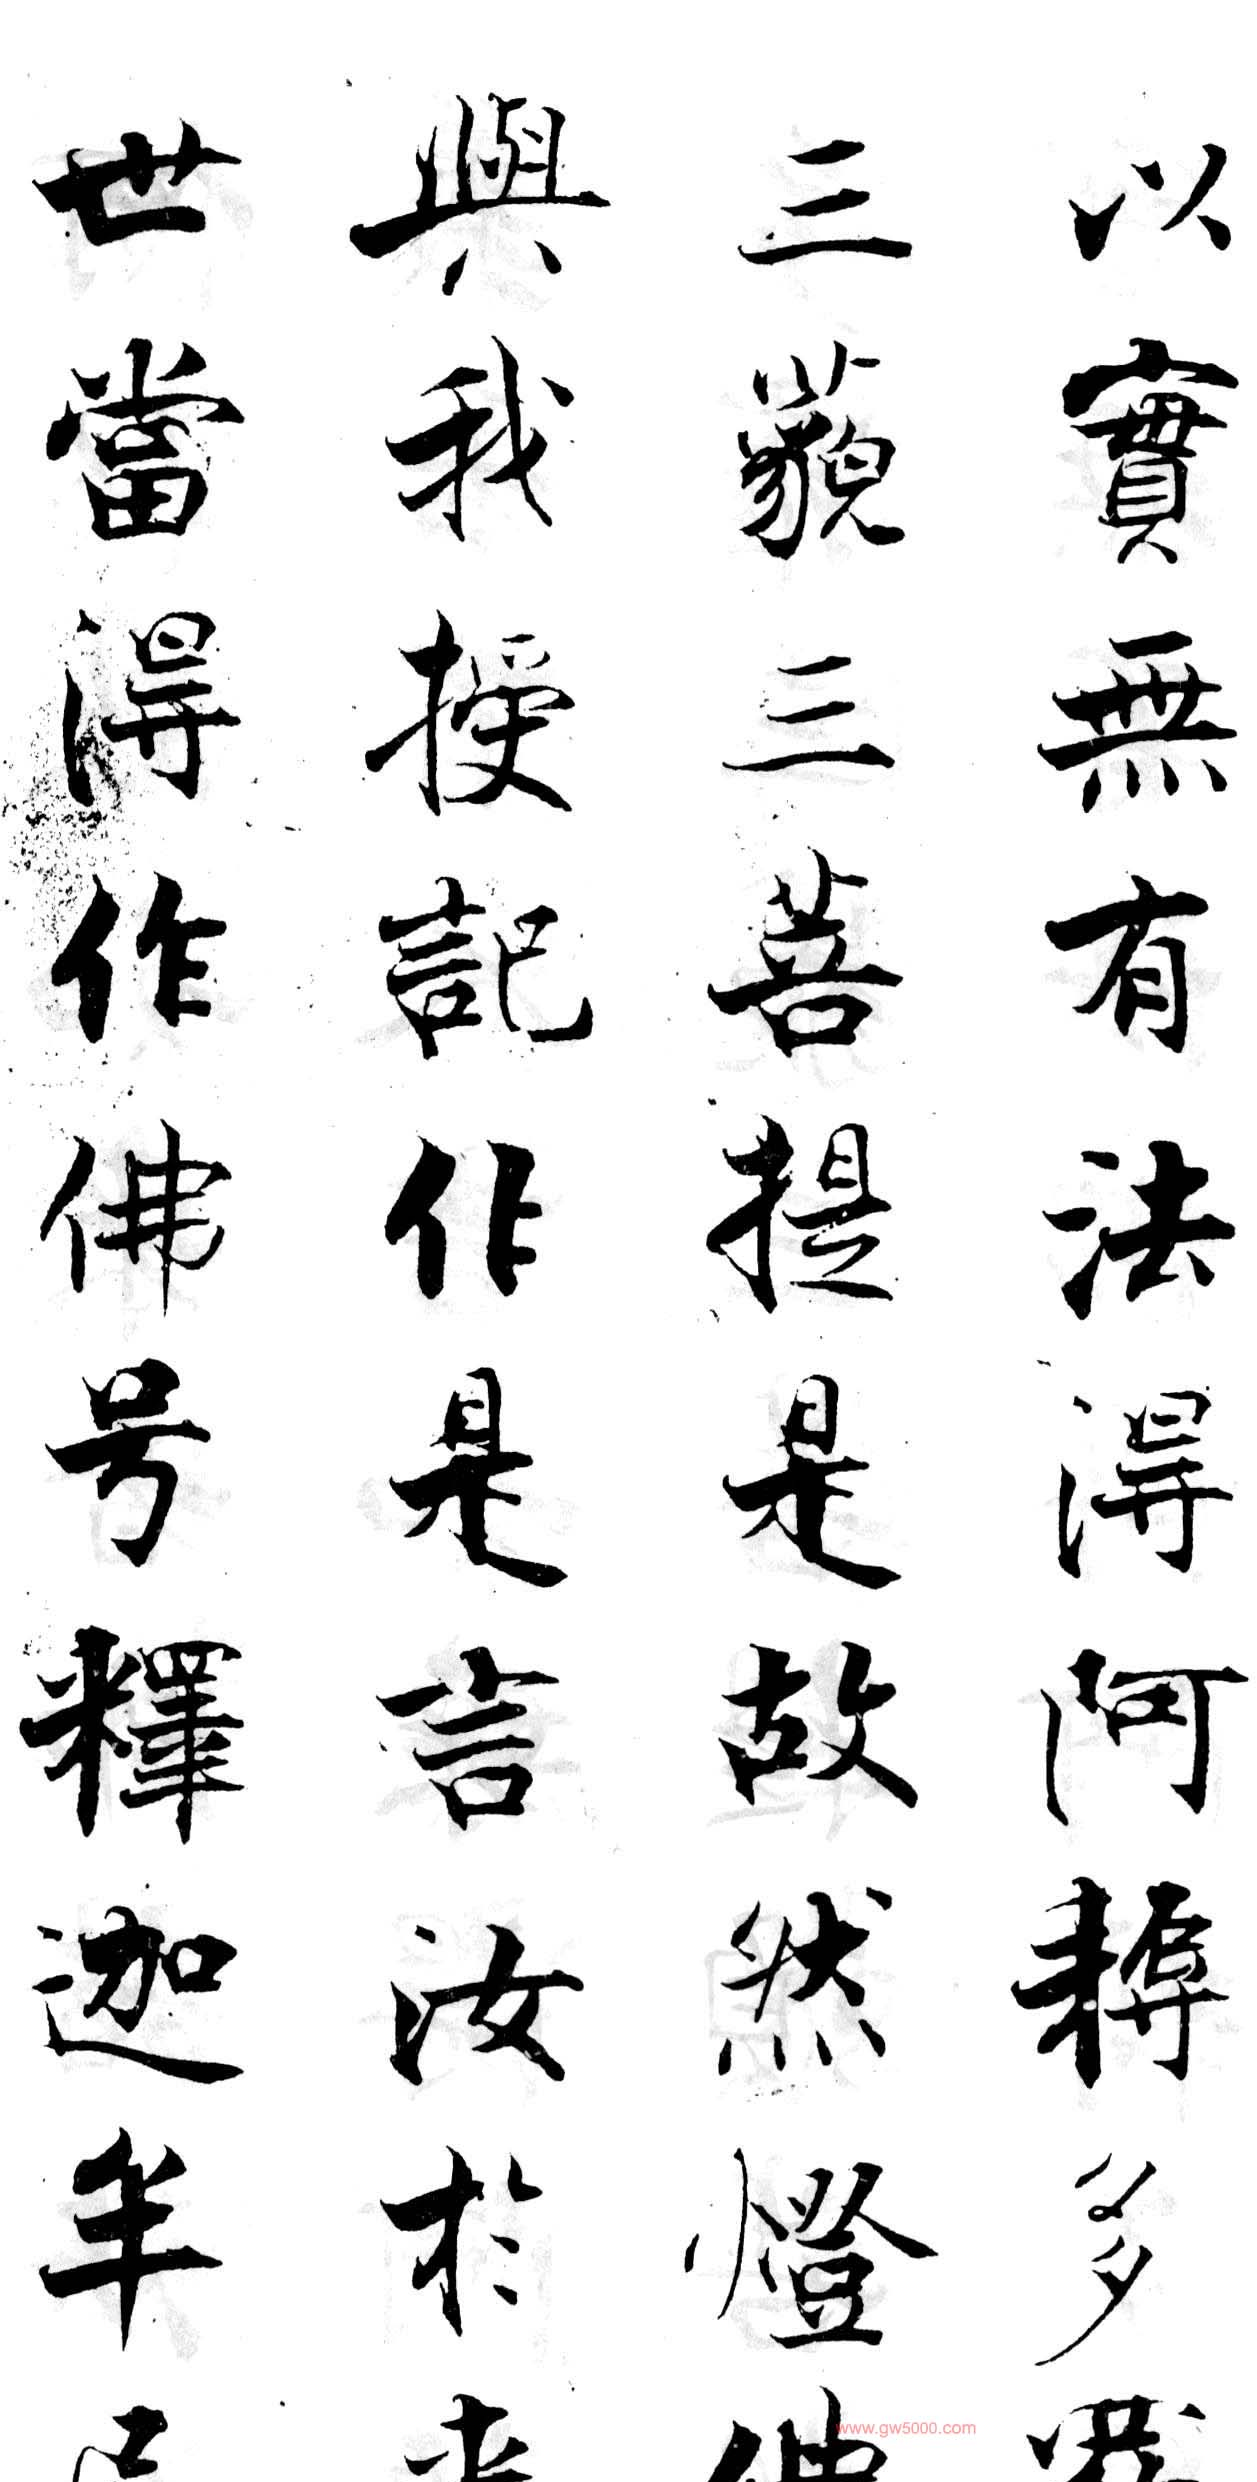 以實無有法得阿耨多羅
三藐三菩提是故然燈佛
與我授記作是言汝於來
世當得作佛号釋迦牟尼
www.gw5000.com